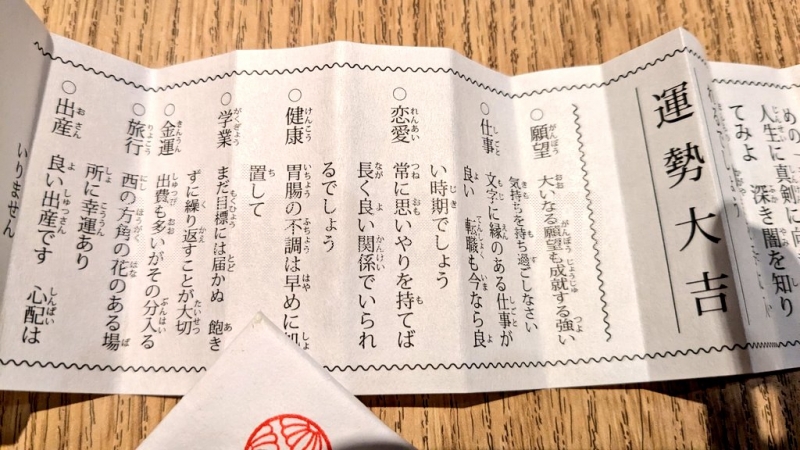 人生に真剣に向
深き闇を知り
てみよ
運勢大吉
○願望 大いなる願望も成就する強い
気持ちを持ち過ごしなさい
○仕事 文字に縁のある仕事が
良い 転職も今なら良
い時期でしょう
○恋愛 常に思いやりを持てば
長く良い関係でいられ
るでしょう
○健康 胃腸の不調は早めに
置して
○学業 まだ目標には届かぬ 飽き
ずに繰り返すことが大切
○金運 出費も多いがその分入る
○旅行 西の方角の花のある場
所に幸運あり
○出産 良い出産です 心配は
いりません